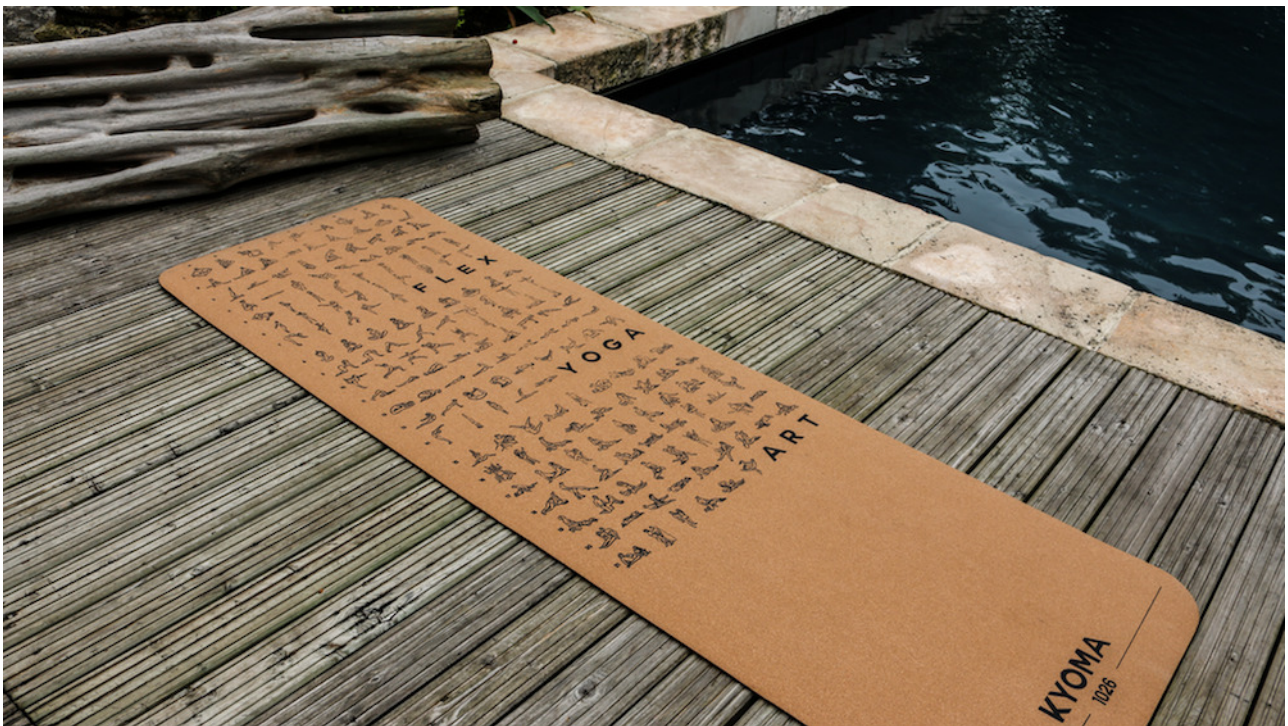 FLEX
YOGA
ART
KYOMA
1026